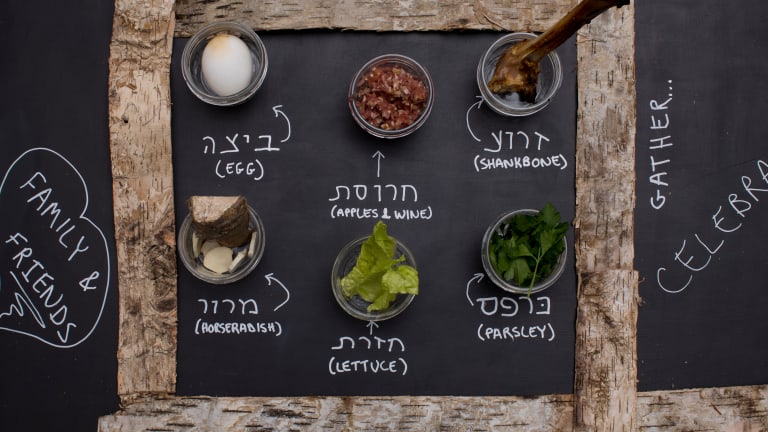 ביצה
(EGG)
חרוסת
(APPLES & WINE)
זרוע
(SHANKBONE)
מרור
(HORSERADISH)
חזרת
(LETTUCE)
כרפס
(PARSLEY)
FAMILY &
FRIENDS
GATHER...
CELEBRA